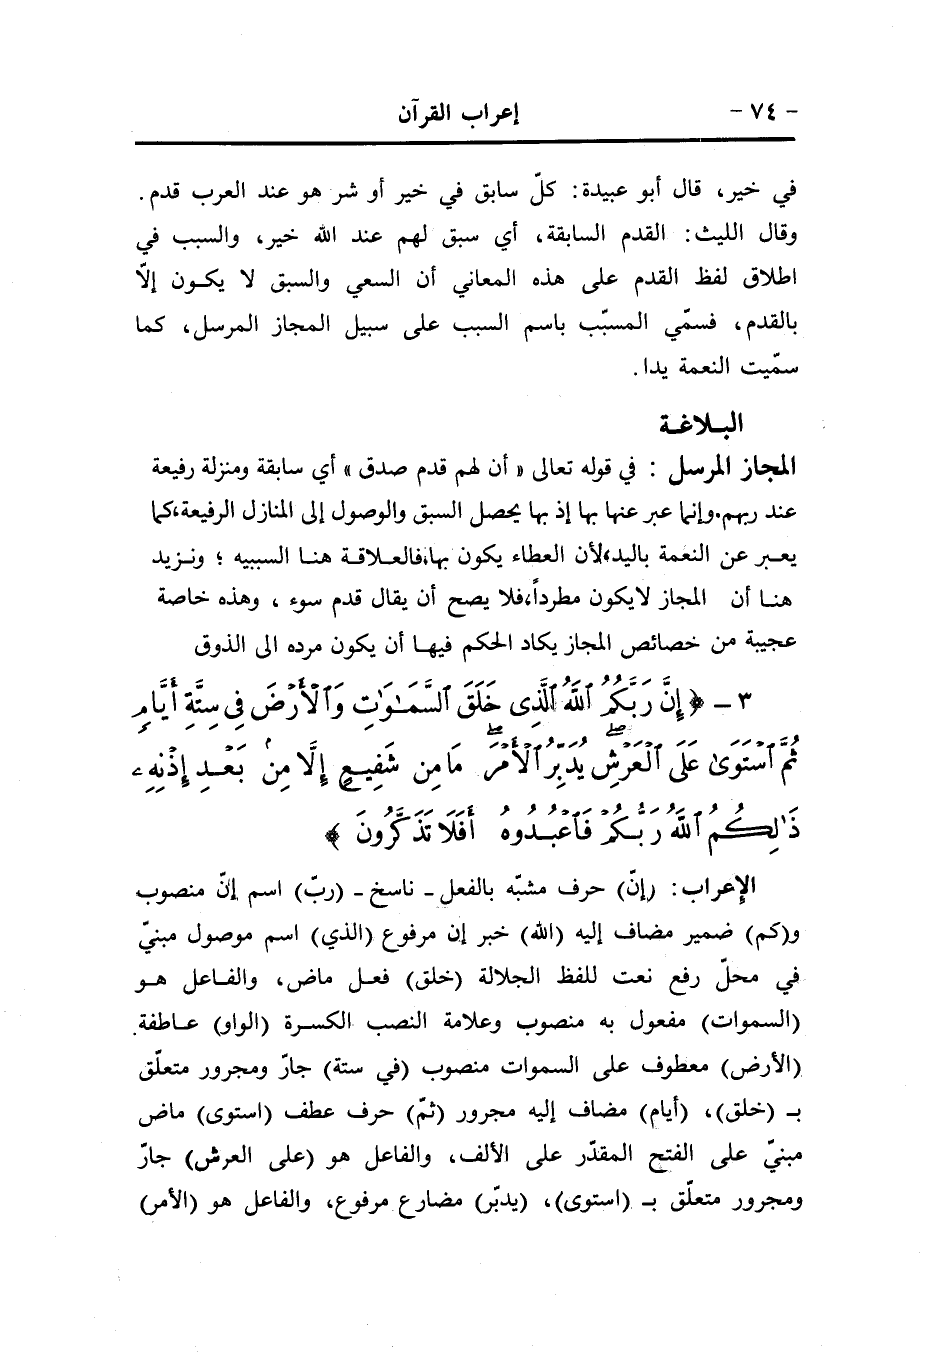 - ٧٤ - إعراب القرآن
في خير، قال أبو عبيدة: كلّ سابق في خير أو شر هو عند العرب قدم.
وقال الليث: القدم السابقة، أي سبق لهم عند الله خير، والسبب في
اطلاق لفظ القدم على هذه المعاني أن السعي والسبق لا يكون إلّا
بالقدم، فسمّي المسبّب باسم السبب على سبيل المجاز المرسل، كما
سمّيت النعمة يدا.
البلاغة
المجاز المرسل : في قوله تعالى « أن لهم قدم صدق » أي سابقة ومنزلة رفيعة
عند ربهم.وإنما عبر عنها بها إذ بها يحصل السبق والوصول إلى المنازل الرفيعة،كما
يعبر عن النعمة باليد،لأن العطاء يكون بها،فالعلاقة هنا السببيه ؛ ونزيد
هنا أن المجاز لايكون مطرداً،فلا يصح أن يقال قدم سوء ، وهذه خاصة
عجيبة من خصائص المجاز يكاد الحكم فيها أن يكون مرده الى الذوق
٣ - ﴿ إِنَّ رَبَّكُمُ ٱللَّهُ ٱلَّذِى خَلَقَ ٱلسَّمَـٰوَٰتِ وَٱلْأَرْضَ فِى سِتَّةِ أَيَّامٍ
ثُمَّ ٱسْتَوَىٰ عَلَى ٱلْعَرْشِ ۖ يُدَبِّرُ ٱلْأَمْرَ ۖ مَا مِن شَفِيعٍ إِلَّا مِنۢ بَعْدِ إِذْنِهِۦ
ذَٰلِكُمُ ٱللَّهُ رَبُّكُمْ فَٱعْبُدُوهُ أَفَلَا تَذَكَّرُونَ ﴾
الإعراب: (إنّ) حرف مشبّه بالفعل - ناسخ - (ربّ) اسم إنّ منصوب
و(كم) ضمير مضاف إليه (الله) خبر إن مرفوع (الذي) اسم موصول مبنيّ
في محلّ رفع نعت للفظ الجلالة (خلق) فعل ماض، والفاعل هو
(السموات) مفعول به منصوب وعلامة النصب الكسرة (الواو) عاطفة.
(الأرض) معطوف على السموات منصوب (في ستة) جارّ ومجرور متعلّق
بـ (خلق)، (أيام) مضاف إليه مجرور (ثمّ) حرف عطف (استوى) ماض
مبنيّ على الفتح المقدّر على الألف، والفاعل هو (على العرش) جارّ
ومجرور متعلّق بـ (استوى)، (يدبّر) مضارع مرفوع، والفاعل هو (الأمر)